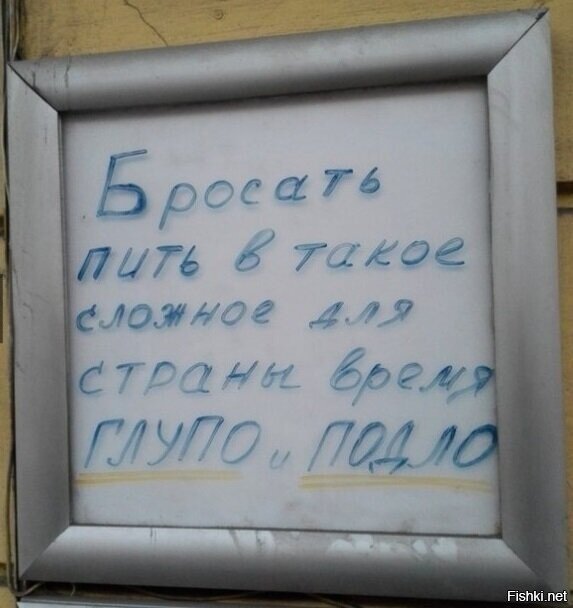 Бросать
пить в такое
сложное для
страны время
ГЛУПО и ПОДЛО
Fishki.net